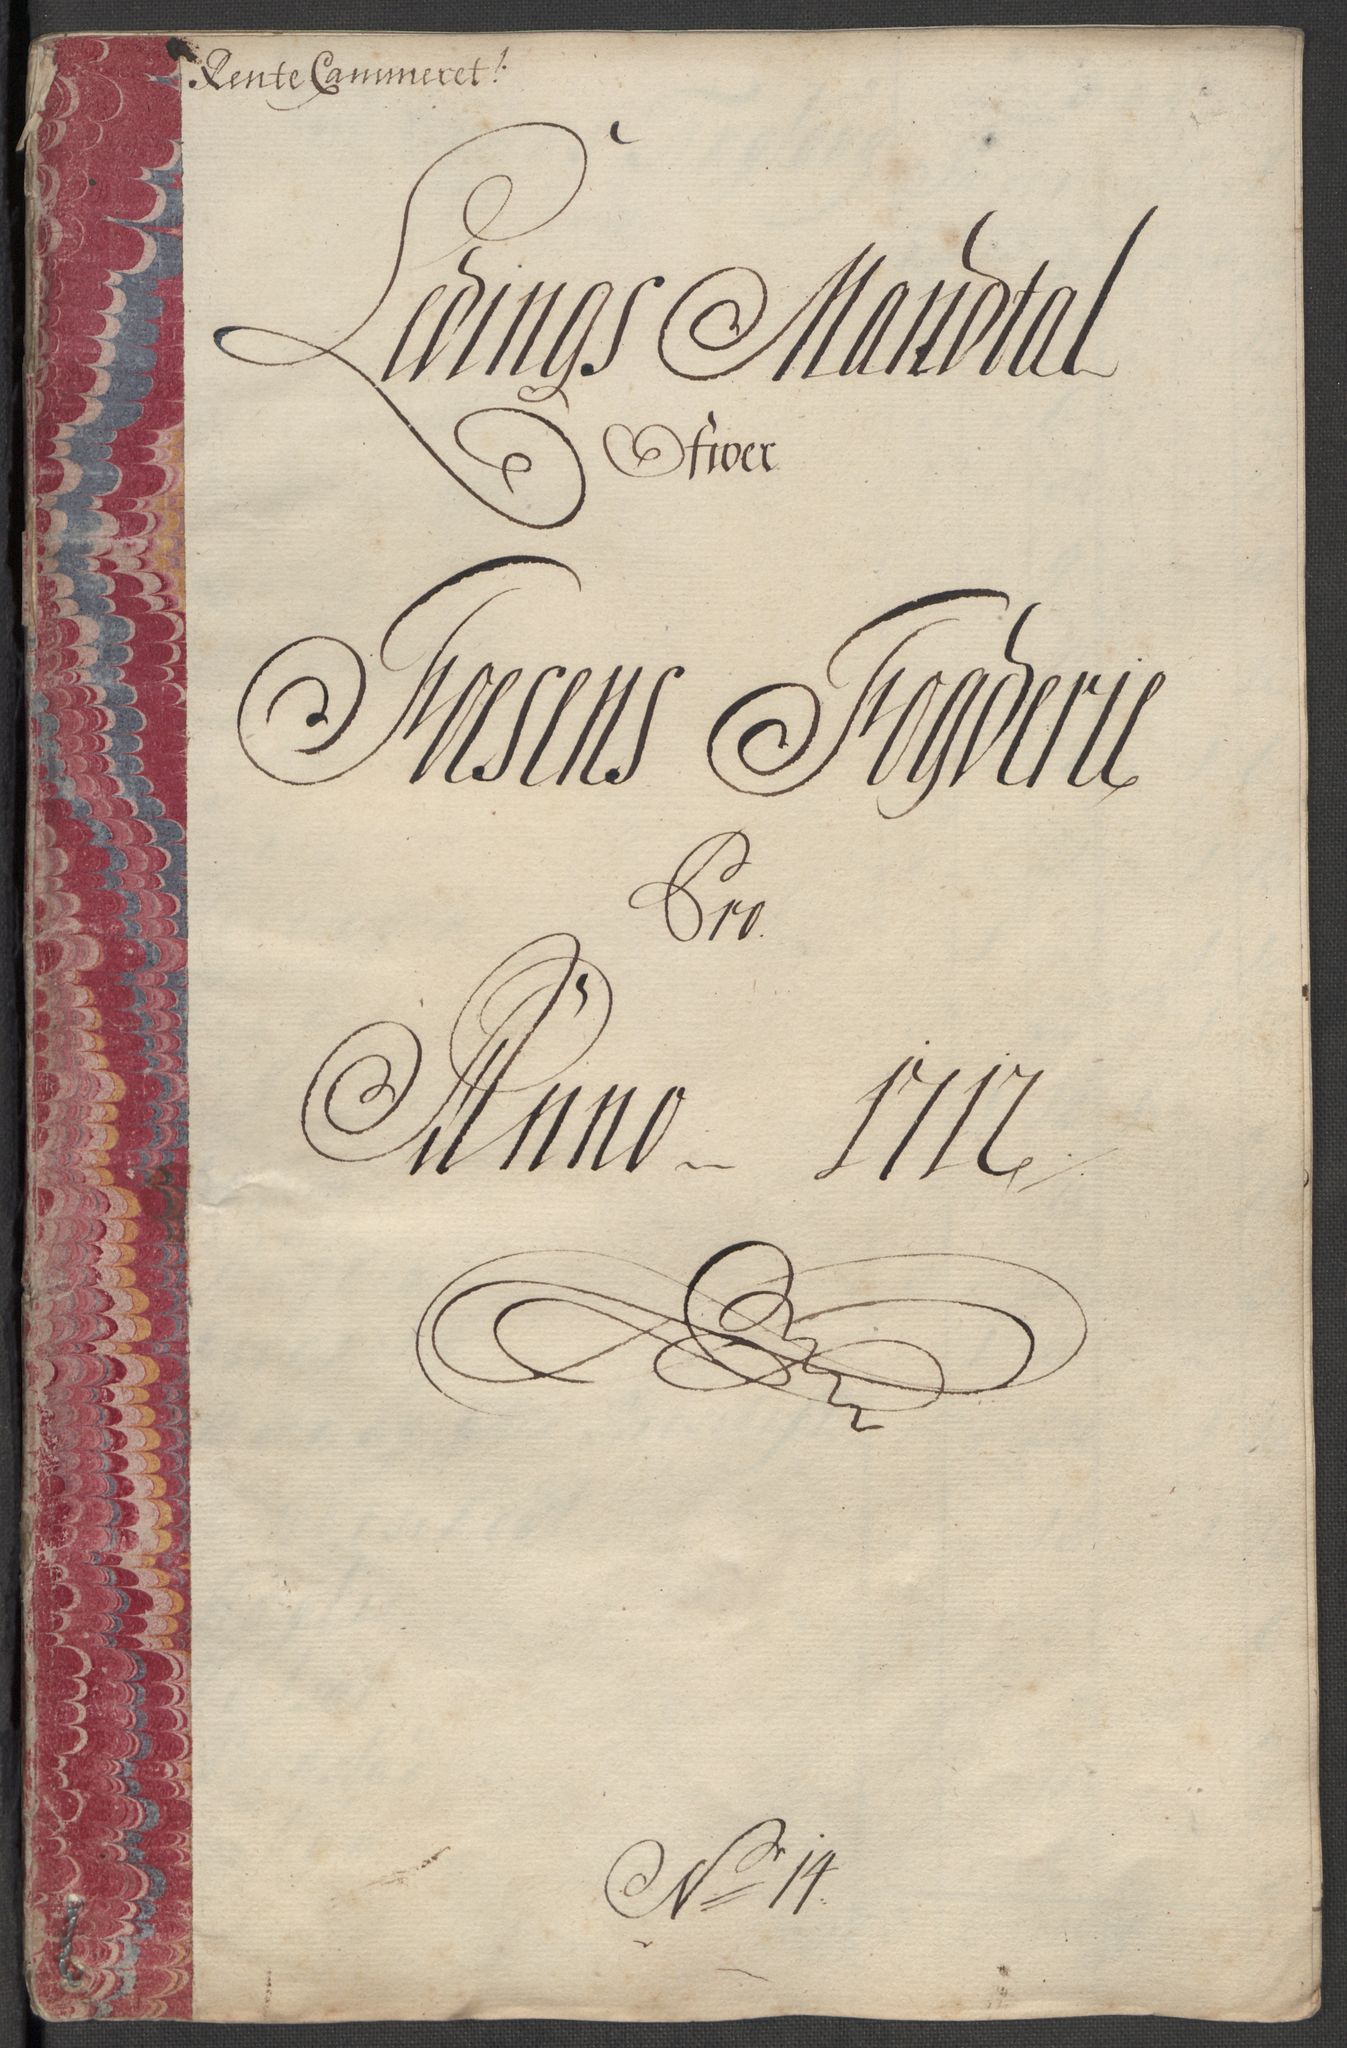 Rente Cammeret!
Ledings Mandtal
Ofwer
Foesens Fogderie
Pro.
Anno 1712
Nr 14.